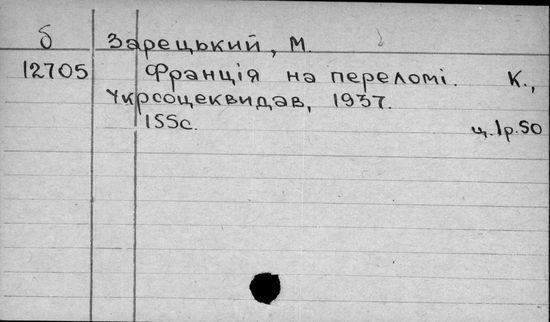 б Зарецький, М.
12705 Франція на переломі. К.,
Укрсоцеквидав, 1937.
155с. ц.1р.50